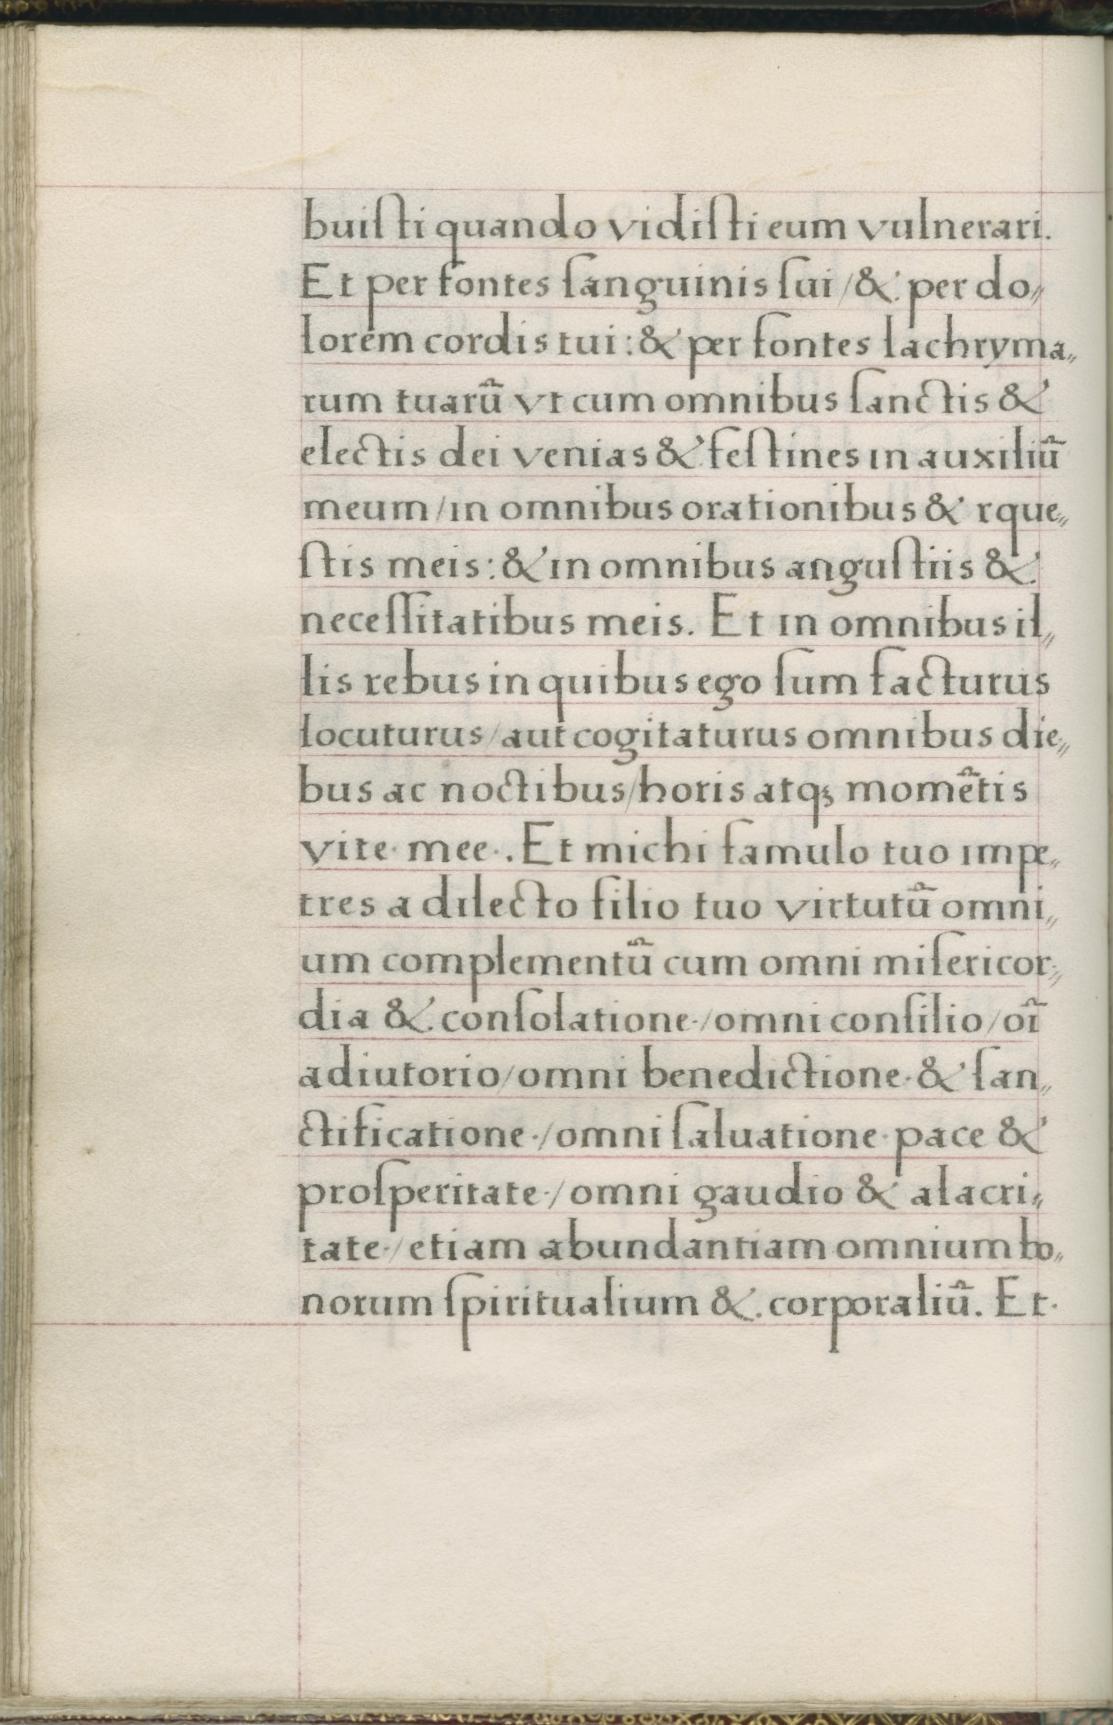 buiſti quando vidiſti eum vulnerari.
Et per fontes ſanguinis ſui / &. per do〃
lorem cordis tui : & per fontes lachryma〃
rum tuarũ vt cum omnibus ſanctis &
electis dei venias & feſtines in auxiliũ
meum / in omnibus orationibus & rque〃
ſtis meis : & in omnibus anguſtiis &.
neceſſitatibus meis. Et in omnibus il〃
lis rebus in quibus ego ſum facturus
locuturus / aut cogitaturus omnibus die〃
bus ac noctibus / horis atqꝫ momẽtis
vite· mee·. Et michi famulo tuo impe〃
tres a dilecto filio tuo virtutũ omni〃
um complementũ cum omni miſericor〃
dia &. conſolatione· / omni conſilio / oĩ
adiutorio / omni benedictione· & ſan〃
ctificatione· / omni ſaluatione· pace &
proſperitate· / omni gaudio & alacri〃
tate· / etiam abundantiam omnium bo〃
norum ſpiritualium &. corporaliũ. Et·